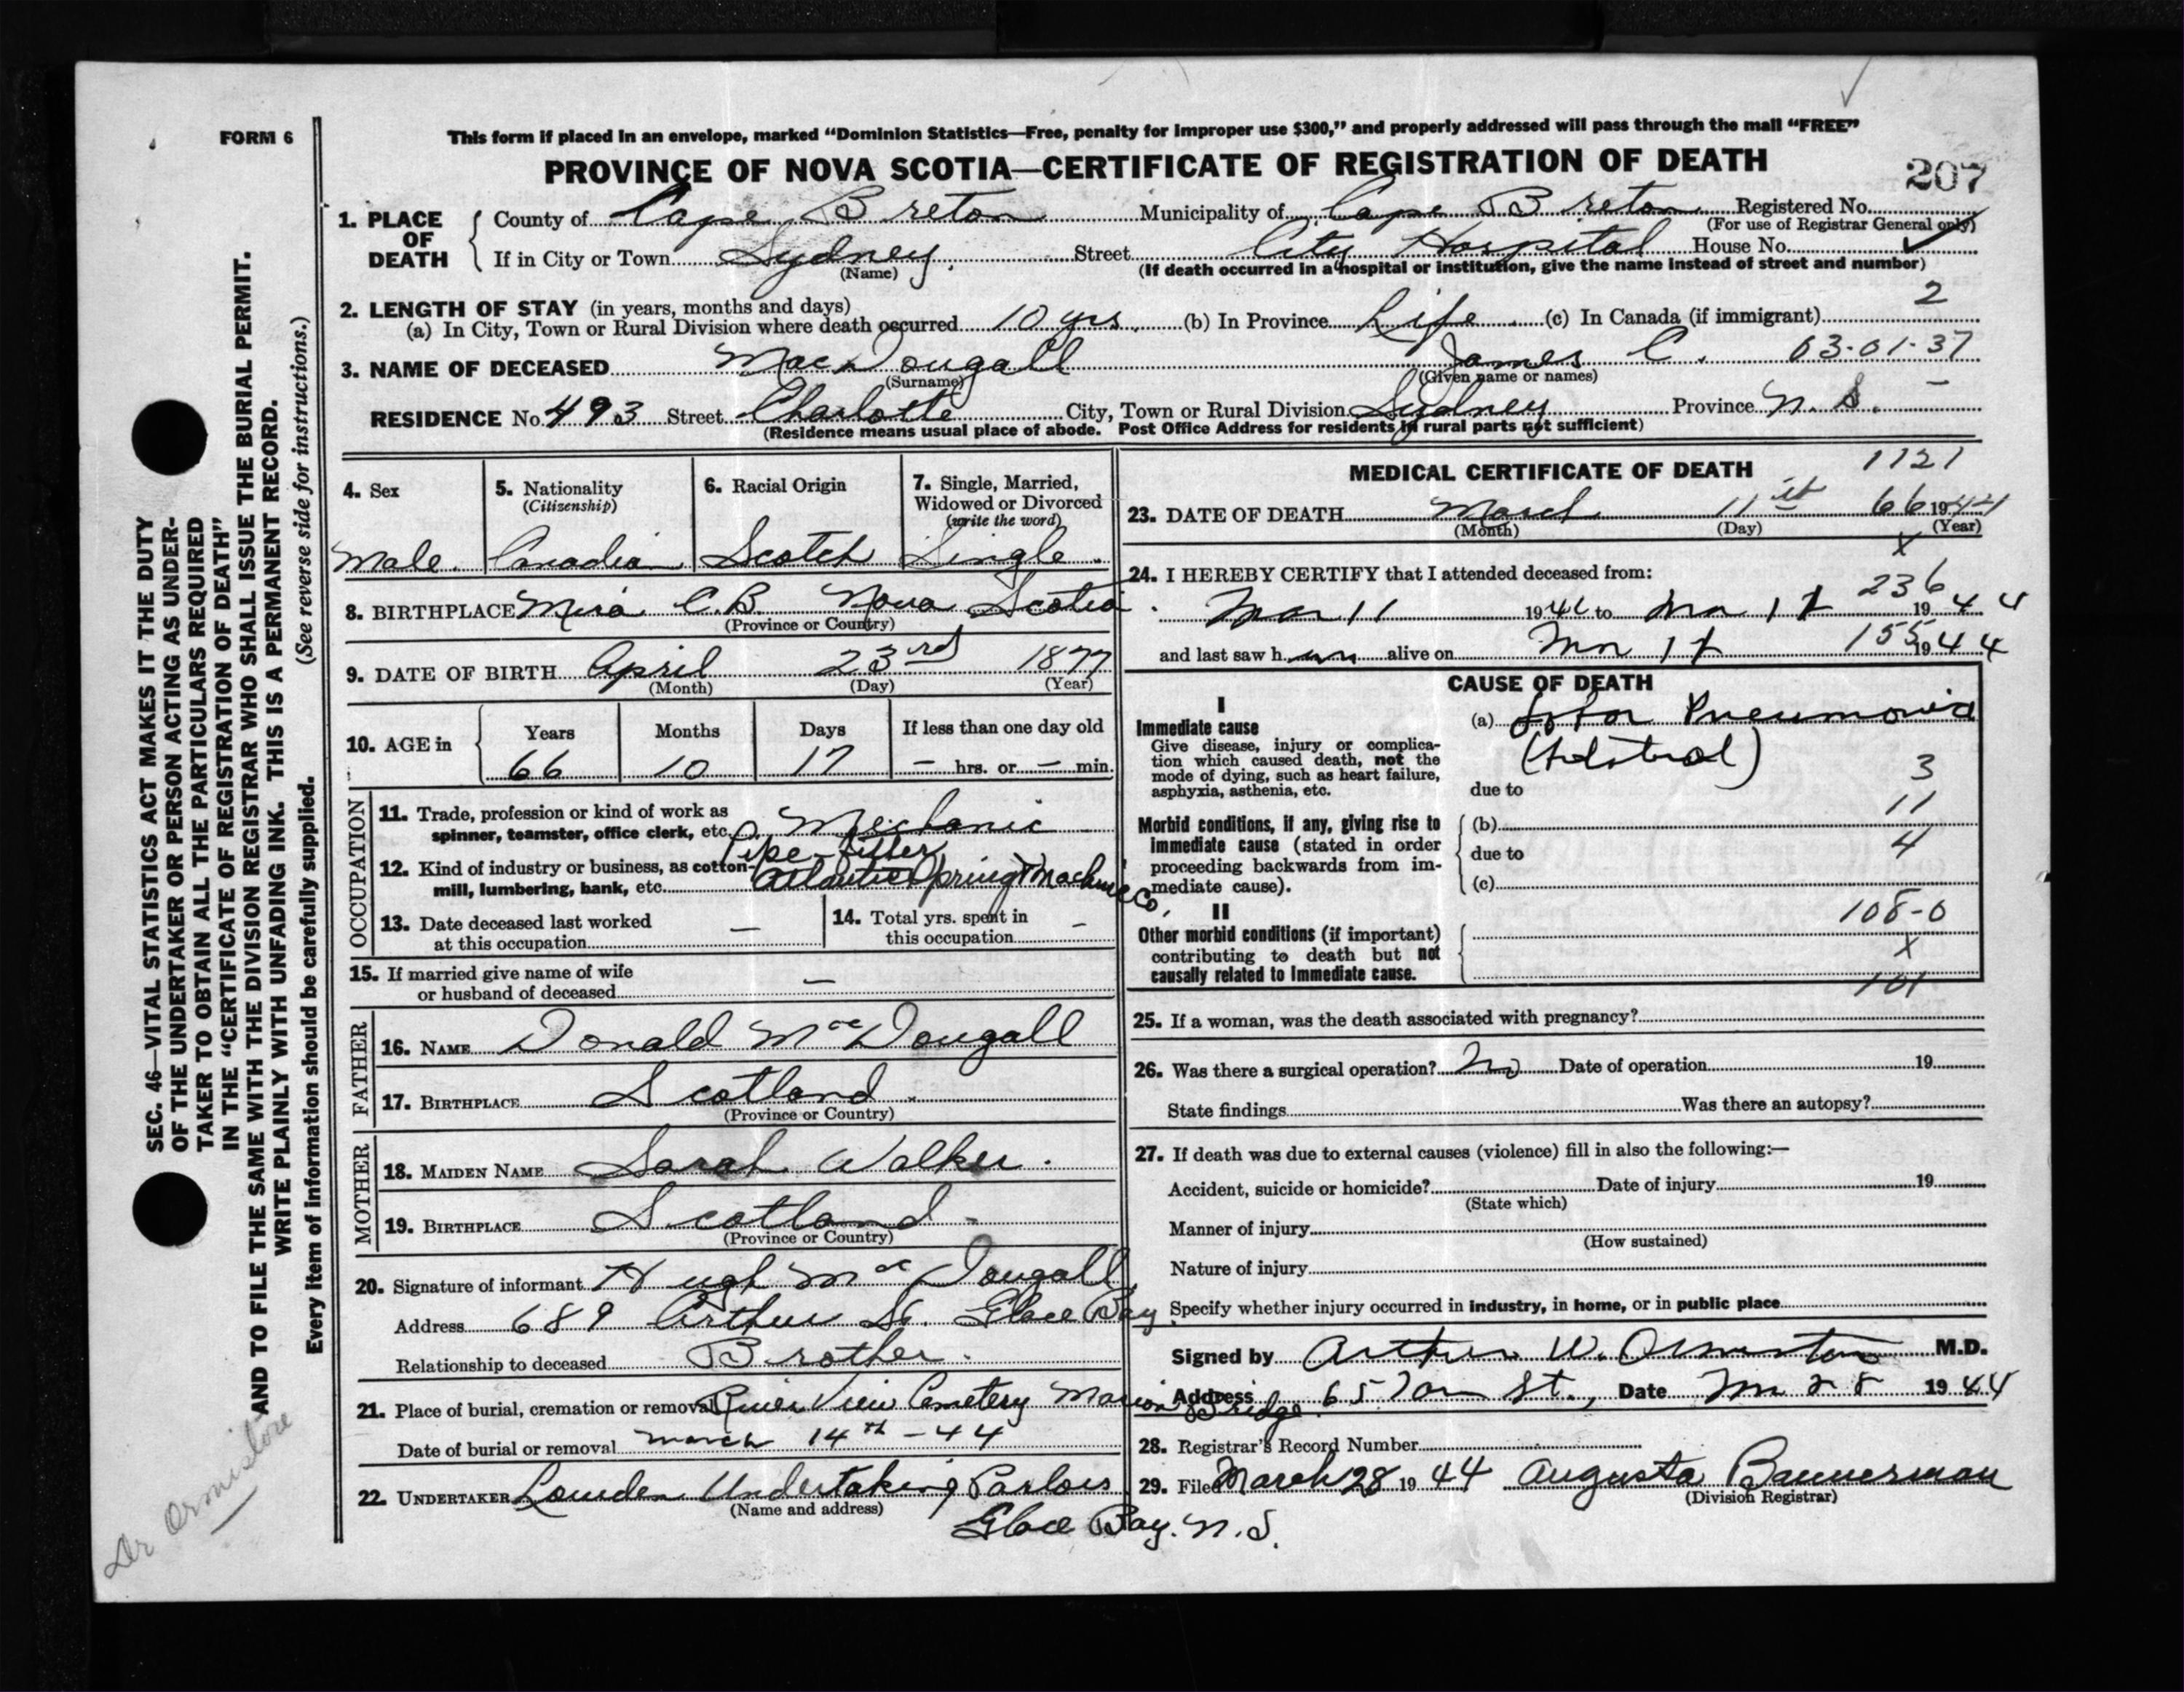 FORM 6
This form if placed in an envelope, marked “Dominion Statistics—Free, penalty for improper use $300,” and properly addressed will pass through the mail “FREE”
PROVINCE OF NOVA SCOTIA—CERTIFICATE OF REGISTRATION OF DEATH
207
1. PLACE OF DEATH
County of Cape Breton Municipality of Cape Breton Registered No.
(For use of Registrar General only)
If in City or Town Sydney. Street City Hospital House No.
(Name) (If death occurred in a hospital or institution, give the name instead of street and number)
2. LENGTH OF STAY (in years, months and days) 2
(a) In City, Town or Rural Division where death occurred 10 yrs. (b) In Province Life (c) In Canada (if immigrant)
3. NAME OF DECEASED MacDougall James C. 03-01-37
(Surname) (Given name or names)
RESIDENCE No. 493 Street Charlotte City, Town or Rural Division Sydney Province N.S. —
(Residence means usual place of abode. Post Office Address for residents in rural parts not sufficient)
4. Sex
Male.
5. Nationality
(Citizenship)
Canadian
6. Racial Origin
Scotch
7. Single, Married,
Widowed or Divorced
(write the word)
Single.
8. BIRTHPLACE Mira C.B. Nova Scotia.
(Province or Country)
9. DATE OF BIRTH April 23rd 1877
(Month) (Day) (Year)
10. AGE in
Years Months Days If less than one day old
66 10 17 — hrs. or — min.
OCCUPATION
11. Trade, profession or kind of work as
spinner, teamster, office clerk, etc. Mechanic
Pipe-fitter
12. Kind of industry or business, as cotton-
mill, lumbering, bank, etc. Atlantic Spring & Machine Co.
13. Date deceased last worked
at this occupation —
14. Total yrs. spent in
this occupation —
15. If married give name of wife
or husband of deceased —
FATHER
16. NAME Donald MacDougall
17. BIRTHPLACE Scotland.
(Province or Country)
MOTHER
18. MAIDEN NAME Sarah Walker.
19. BIRTHPLACE Scotland-
(Province or Country)
20. Signature of informant Hugh MacDougall
Address 689 Arthur St. Glace Bay.
Relationship to deceased Brother.
21. Place of burial, cremation or removal River View Cemetery Marion Bridge.
Date of burial or removal March 14th -44
22. UNDERTAKER Lowden Undertaking Parlors
(Name and address)
Glace Bay. N.S.
MEDICAL CERTIFICATE OF DEATH 1121
23. DATE OF DEATH March 11 66 1944
(Month) (Day) (Year)
X
24. I HEREBY CERTIFY that I attended deceased from:
236
Mar 11 1944 to 1944
155
and last saw h im alive on 1944
CAUSE OF DEATH
I
Immediate cause
Give disease, injury or complica-
tion which caused death, not the
mode of dying, such as heart failure,
asphyxia, asthenia, etc.
(a) Lobar Pneumonia
3
due to
11
Morbid conditions, if any, giving rise to
immediate cause (stated in order
proceeding backwards from im-
mediate cause).
(b)
due to
4
(c)
II
108-0
Other morbid conditions (if important)
contributing to death but not
causally related to immediate cause.
X
101
25. If a woman, was the death associated with pregnancy?
26. Was there a surgical operation? No Date of operation 19
State findings Was there an autopsy?
27. If death was due to external causes (violence) fill in also the following:—
Accident, suicide or homicide? Date of injury 19
(State which)
Manner of injury
(How sustained)
Nature of injury
Specify whether injury occurred in industry, in home, or in public place
Signed by Arthur W. Ormiston M.D.
Address St., Date 28 1944
28. Registrar's Record Number
29. Filed March 28 1944 Augusta Bannerman
(Division Registrar)
SEC. 46—VITAL STATISTICS ACT MAKES IT THE DUTY
OF THE UNDERTAKER OR PERSON ACTING AS UNDER-
TAKER TO OBTAIN ALL THE PARTICULARS REQUIRED
IN THE “CERTIFICATE OF REGISTRATION OF DEATH”
AND TO FILE THE SAME WITH THE DIVISION REGISTRAR WHO SHALL ISSUE THE BURIAL PERMIT.
WRITE PLAINLY WITH UNFADING INK. THIS IS A PERMANENT RECORD.
(See reverse side for instructions.)
Every item of information should be carefully supplied.
Dr Ormistone